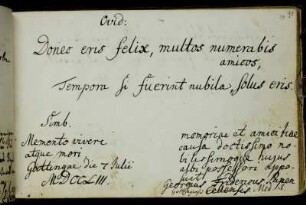 Ovid:
Donec eris felix, multos numerabis
amicos,
Tempora si fuerint nubila, solus eris.
Symb.
Memento vivere
atque mori
Gottingae die 7 Julii
MDCCLIII.
memoriae et amicitiae
causa doctissimo no
bilissimoque hujus
albi possessori appo
suit
Georgius
Cellensis Med.